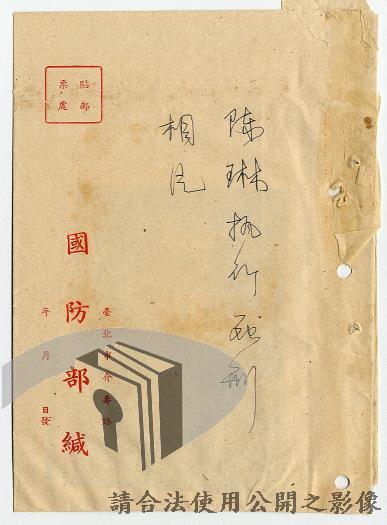 陳琳執行死刑
相片
貼郵
票處
臺北市介壽路
國防部緘
年 月 日發
請合法使用公開之影像